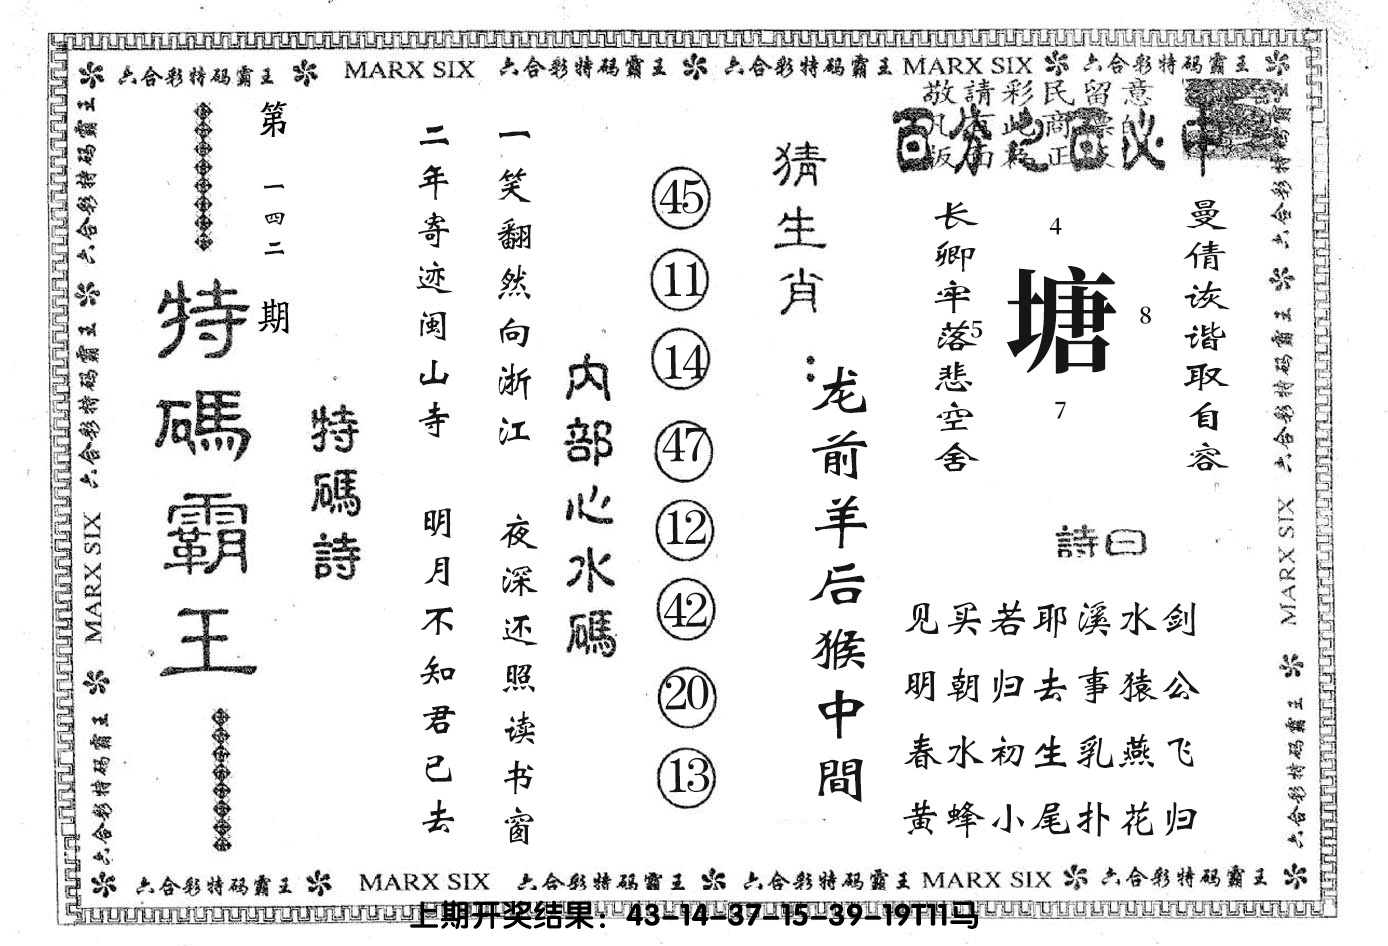 六合彩特码霸王 MARX SIX 六合彩特码霸王 六合彩特码霸王 MARX SIX 六合彩特码霸王
敬請彩民留意
百分之百必中
曼倩诙谐取自容
4
塘
5
8
7
长卿牢落悲空舍
詩曰
见买若耶溪水剑
明朝归去事猿公
春水初生乳燕飞
黄蜂小尾扑花归
猜生肖：
龙前羊后猴中間
45
11
14
47
12
42
20
13
内部心水碼
一笑翻然向浙江 夜深还照读书窗
二年寄迹闽山寺 明月不知君已去
特碼詩
第一四二期
特碼霸王
六合彩特码霸王 六合彩特码霸王 MARX SIX 六合彩特码霸王
六合彩特码霸王 六合彩特码霸王 MARX SIX 六合彩特码霸王
六合彩特码霸王 MARX SIX 六合彩特码霸王 六合彩特码霸王 MARX SIX 六合彩特码霸王
上期开奖结果：43-14-37-15-39-19T11马